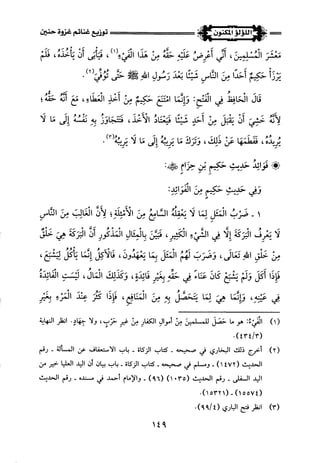 اللؤلؤ المكنون
توزيع غنائم غزوة حنين
مَعْشَرَ المُسْلِمِينَ، أَنِّي أَعْرِضُ عَلَيْهِ حَقَّهُ مِنْ هَذَا الفَيْءِ(١)، فَيَأْبَى أَنْ يَأْخُذَهُ، فَلَمْ
يَرْزَأْ حَكِيمٌ أَحَدًا مِنَ النَّاسِ شَيْئًا بَعْدَ رَسُولِ اللهِ ﷺ حَتَّى تُوُفِّيَ(٢).
قَالَ الحَافِظُ فِي الفَتْحِ: وَإِنَّمَا امْتَنَعَ حَكِيمٌ مِنْ أَخْذِ العَطَاءِ، مَعَ أَنَّهُ حَقُّهُ؛
لِأَنَّهُ خَشِيَ أَنْ يَقْبَلَ مِنْ أَحَدٍ شَيْئًا فَيَعْتَادَ الأَخْذَ، فَتَتَجَاوَزُ بِهِ نَفْسُهُ إِلَى مَا لَا
يُرِيدُهُ، فَفَطَمَهَا عَنْ ذَلِكَ، وَتَرَكَ مَا يَرِيبُهُ إِلَى مَا لَا يَرِيبُهُ(٣).
فَوَائِدُ حَدِيثِ حَكِيمِ بْنِ حِزَامٍ ﷺ:
وَفِي حَدِيثِ حَكِيمٍ مِنَ الفَوَائِدِ:
١ - ضَرْبُ المَثَلِ لِمَا لَا يَعْقِلُهُ السَّامِعُ مِنَ الأَمْثِلَةِ؛ لِأَنَّ الغَالِبَ مِنَ النَّاسِ
لَا يَعْرِفُ البَرَكَةَ إِلَّا فِي الشَّيْءِ الكَثِيرِ، فَبَيَّنَ بِالمِثَالِ المَذْكُورِ أَنَّ البَرَكَةَ هِيَ خَلْقٌ
مِنْ خَلْقِ اللهِ تَعَالَى، وَضَرَبَ لَهُمُ المَثَلَ بِمَا يَعْهَدُونَ، فَالآكِلُ إِنَّمَا يَأْكُلُ لِيَشْبَعَ،
فَإِذَا أَكَلَ وَلَمْ يَشْبَعْ كَانَ عَنَاءً فِي حَقِّهِ بِغَيْرِ فَائِدَةٍ، وَكَذَلِكَ المَالُ، لَيْسَتِ الفَائِدَةُ
فِي عَيْنِهِ، وَإِنَّمَا هِيَ لِمَا يَتَحَصَّلُ بِهِ مِنَ المَنَافِعِ، فَإِذَا كَثُرَ عِنْدَ المَرْءِ بِغَيْرِ
(١) الفَيْءُ: هو ما حَصَلَ للمسلمين مِنْ أموالِ الكفار مِنْ غيرِ حَرْبٍ، ولا جِهَادٍ. انظر النهاية
(٤٣٤/٣).
(٢) أخرج ذلك البخاري في صحيحه ـ كتاب الزكاة ـ باب الاستعفاف عن المسألة ـ رقم
الحديث (١٤٧٢) ـ ومسلم في صحيحه ـ كتاب الزكاة ـ باب بيان أن اليد العليا خير من
اليد السفلى ـ رقم الحديث (١٠٣٥) (٩٦) ـ والإمام أحمد في مسنده ـ رقم الحديث
(١٥٥٧٤) ـ (١٥٣٢١).
(٣) انظر فتح الباري (٩٩/٤).
١٤٩